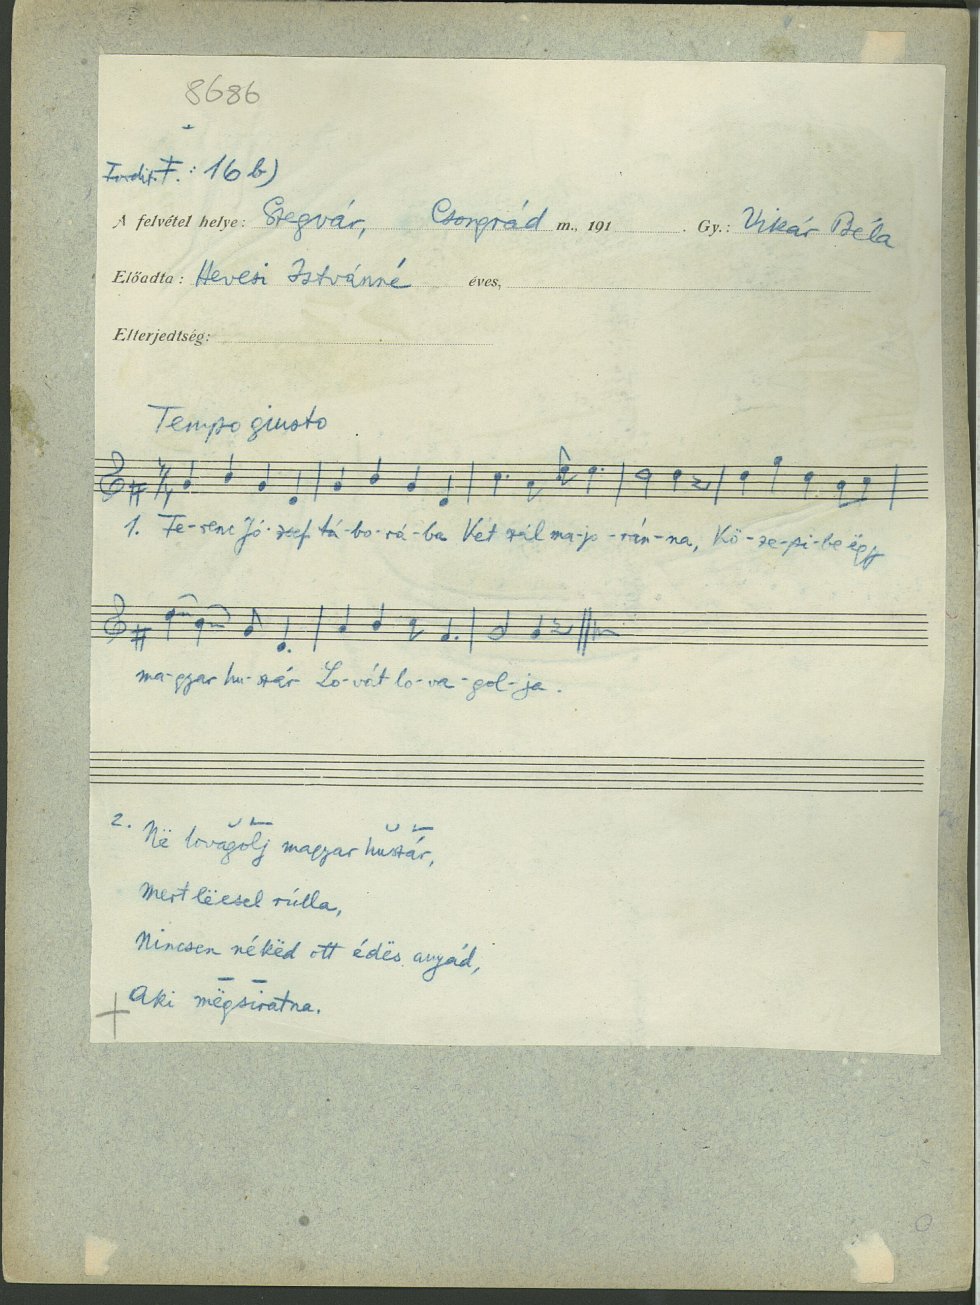 8686
F.: 16 b)
A felvétel helye: Szegvár, Csongrád m., 191 . Gy.: Vikár Béla
Előadta: Hevesi Istvánné éves,
Elterjedtség:
Tempo giusto
1. Fe-renc Jó-zsef tá-bo-rá-ba Két szál ma-jo-rán-na, Kö-ze-pi-be ëgy
ma-gyar hu-szár Lo-vát lo-va-gol-ja.
2. Në lovagolj magyar huszár,
Mert lëesel rúlla,
Nincsen nékëd ott édës anyád,
Aki mëgsiratna.